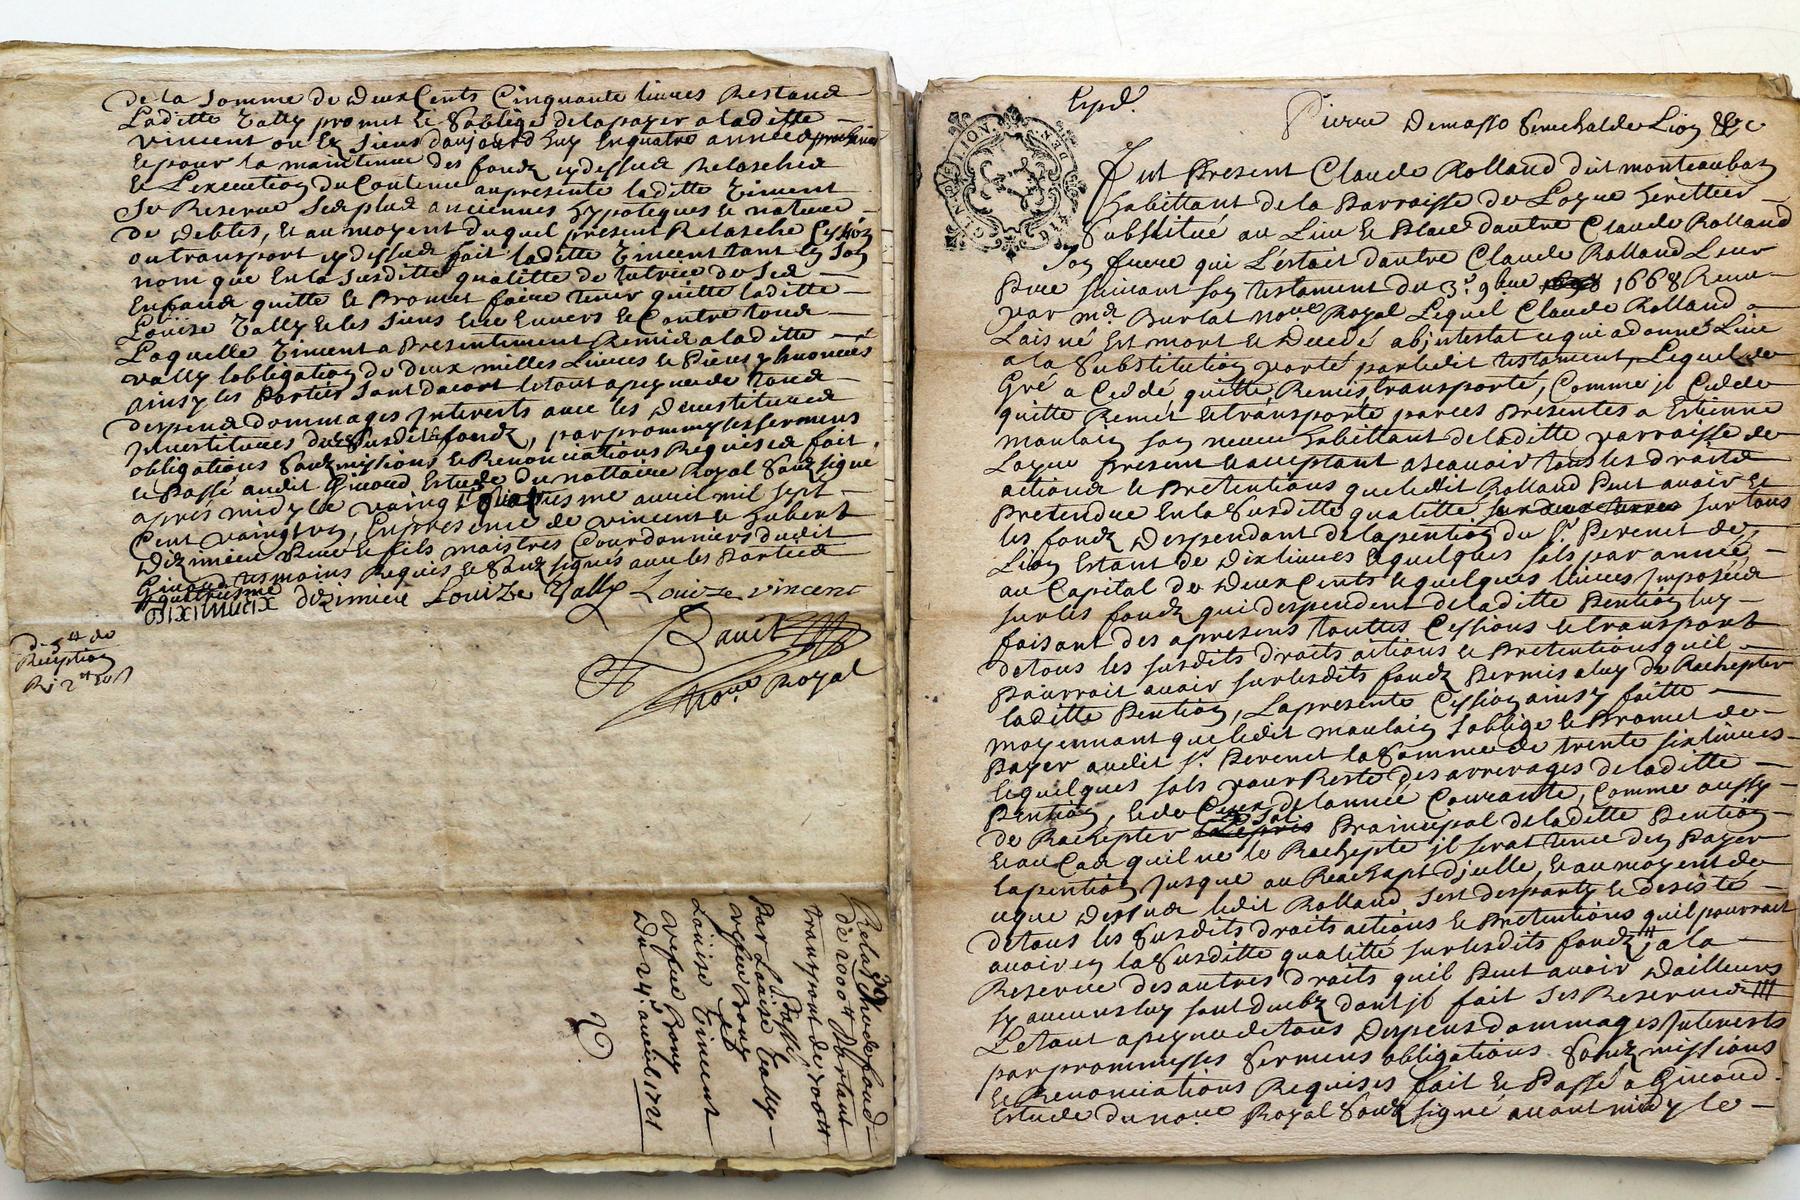 de la somme de deux Cents Cinquante livres Restand
Laditte Vally promet & soblige de la payer a laditte
vincent ou Ex siens daujourdhuy En quatre années prochaines
Et pour la maintenue des fondz cydessus Relaschés
& L'execution du Contenu au presente laditte Vincent
Se Reserve Ses plus anciennes hypoteques & nature
de debtes, Et au moyend duquel present Relasche Cession
ou transport cydessus fait laditte Vincent tant En son
nom que En la susditte qualitté de tutrice de Ses
Enfands quitte & Promet faire tenir quitte laditte
Louise Vally & les siens Envers & Contre tous
Laquelle Vincent a Presentement Remis a laditte
vally lobligation de deux milles Livres &
ainsy les Parties Sont dacort le tout a peyne de tous
despens dommages Interests avec les
du susdit fondz, par prommesses sermens
obligations Soubzmissions & Renonciations Requises fait
& Passé audit Givord Estude du nottaire Royal Soubzsigné
apres midy le vaingt quatriesme avril mil sept
Cent vaingtun, En presence de vincent & hubert
Dizimieu Pere & fils maistres Courdonniers dudit
Givord tesmoins Requis & Soubzsignés avec les Parties
quatriesme
dizimieu Louize Vally Louize vincent
Royal
Reception
30
Relasche de fond
de 2000 tt Portant
transport de
Passé
Par Louise Vally
vefve
&
Louise Vincent
vefve
Du 24. avril 1721
Expd.
Pierre Demasso Senechal de Lion &c
GENERALITE DE LION
Fut Present Claude Rolland dit montauban
habittant de la Parroisse de Loyre heritier
Substitué au Lieu & Place dautre Claude Rolland
Son frere qui L'estait dautre Claude Rolland Leur
Pere suivant son testament du 3e. 9bre 1668 Receu
par me Burlat nore Royal Lequel Claude Rolland
Laisné Est mort & Decedé abjntestat ce qui a donné Lieu
a la Substitution porté par ledit testament, Lequel de
Gré a Ceddé quitte Remis transporté, Comme jl Cedde
quitte Remet & transporte par ces Presentes a Estienne
moulain son neveu habittant de laditte parroisse de
Loyre present & acceptant ascavoir tous les droits
actions & Pretentions que ledit Rolland Peut avoir &
Pretendre En la Susditte qualitté sur deux terres sur tous
les fondz Despendant de la pention du Sr. Perenet de
Lion Estant de dix livres & quelques sols par année
au Capital de deux Cents & quelques livres Imposées
sur les fondz qui despendent de laditte Pention luy
faisant des apresens touttes Cessions & transport
de tous les susdits droits actions & Pretentions quil
Pourrait avoir sur lesdits fondz Permis a luy de Rachepter
laditte Pention, La presente Cession ainsy faitte
moyennant que ledit moulain soblige & Promet de
Payer audit Sr. Perenet la Somme de trente six livres
& quelques sols pour Reste des arrerages de laditte
Pention, & de Ceux de lannée Courante, Comme aussy
de Rachepter Prainsipal de laditte Pention
& au Cas quil ne le Rachepte jl serat tenu den Payer
la pention Jusque au Reachapt djcelle, & au moyent de
ceque Dessus ledit Rolland sest desparty & desisté
de tous les Susdits droits actions & Pretentions quil pourrait
avoir En la Susditte qualitté sur lesdits fondz, a la
Reserve des autres droits quil Peut avoir Dailleurs
sy aucuns luy sont deubz dont jl fait Ses Reserves
Le tout a peyne de tous Despens dommages Interests
par prommesses Sermens obligations Soubzmissions
& Renonciations Requises fait & Passé a Givord
Estude du nore. Royal Soubzsigné avant midy le